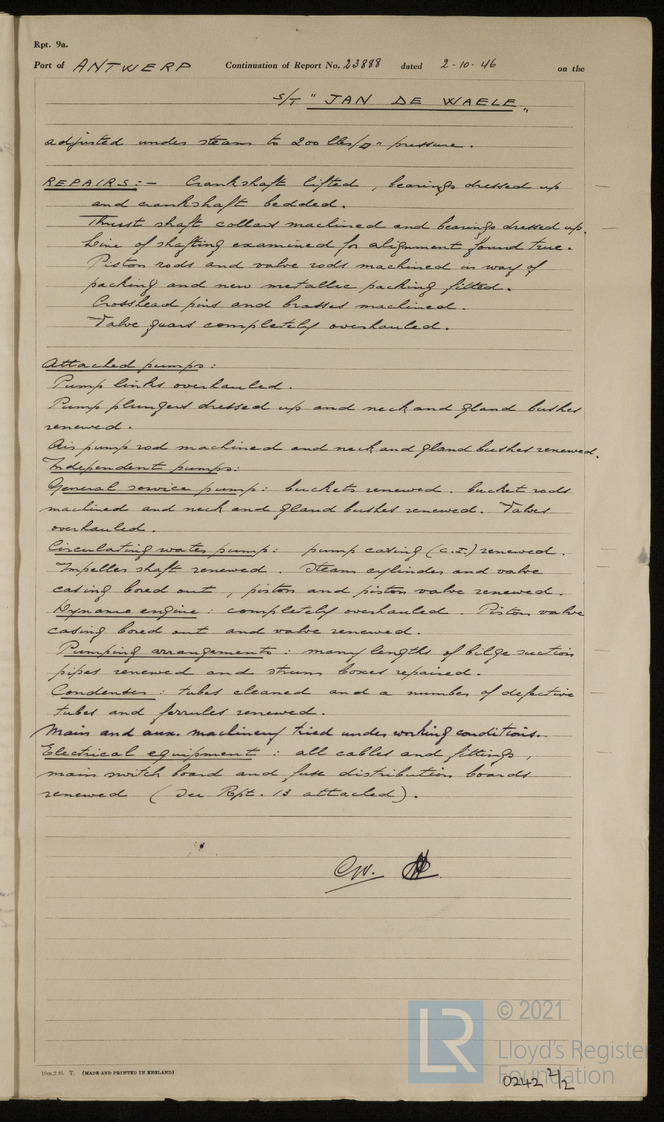 Rpt. 9a.
Port of ANTWERP Continuation of Report No. 23888 dated 2-10-46 on the
S/T "JAN DE WAELE"
adjusted under steam to 200 lbs/□" pressure.
REPAIRS:- Crankshaft lifted, bearings dressed up
and crankshaft bedded.
Thrust shaft collars machined and bearings dressed up.
Line of shafting examined for alignment found true.
Piston rods and valve rods machined in way of
packing and new metallic packing fitted.
Crosshead pins and brasses machined.
Valve gears completely overhauled.
Attached pumps:
Pump links overhauled.
Pump plungers dressed up and neck and gland bushes
renewed.
Air pump rod machined and neck and gland bushes renewed.
Independent pumps:
General service pump: buckets renewed. bucket rods
machined and neck and gland bushes renewed. Valves
overhauled.
Circulating water pump: pump casing (C.I.) renewed.
Impeller shaft renewed. Steam cylinder and valve
casing bored out, piston and piston valve renewed.
Dynamo engine: completely overhauled. Piston valve
casing bored out and valve renewed.
Pumping arrangements: many lengths of bilge suction
pipes renewed and strum boxes repaired.
Condenser: tubes cleaned and a number of defective
tubes and ferrules renewed.
Main and aux. machinery tried under working conditions.
Electrical equipment: all cables and fittings,
main switch board and fuse distribution boards
renewed (See Rpt. 13 attached).
T. (MADE AND PRINTED IN ENGLAND)
LR
© 2021
Lloyd's Register
Foundation
0242 2/2